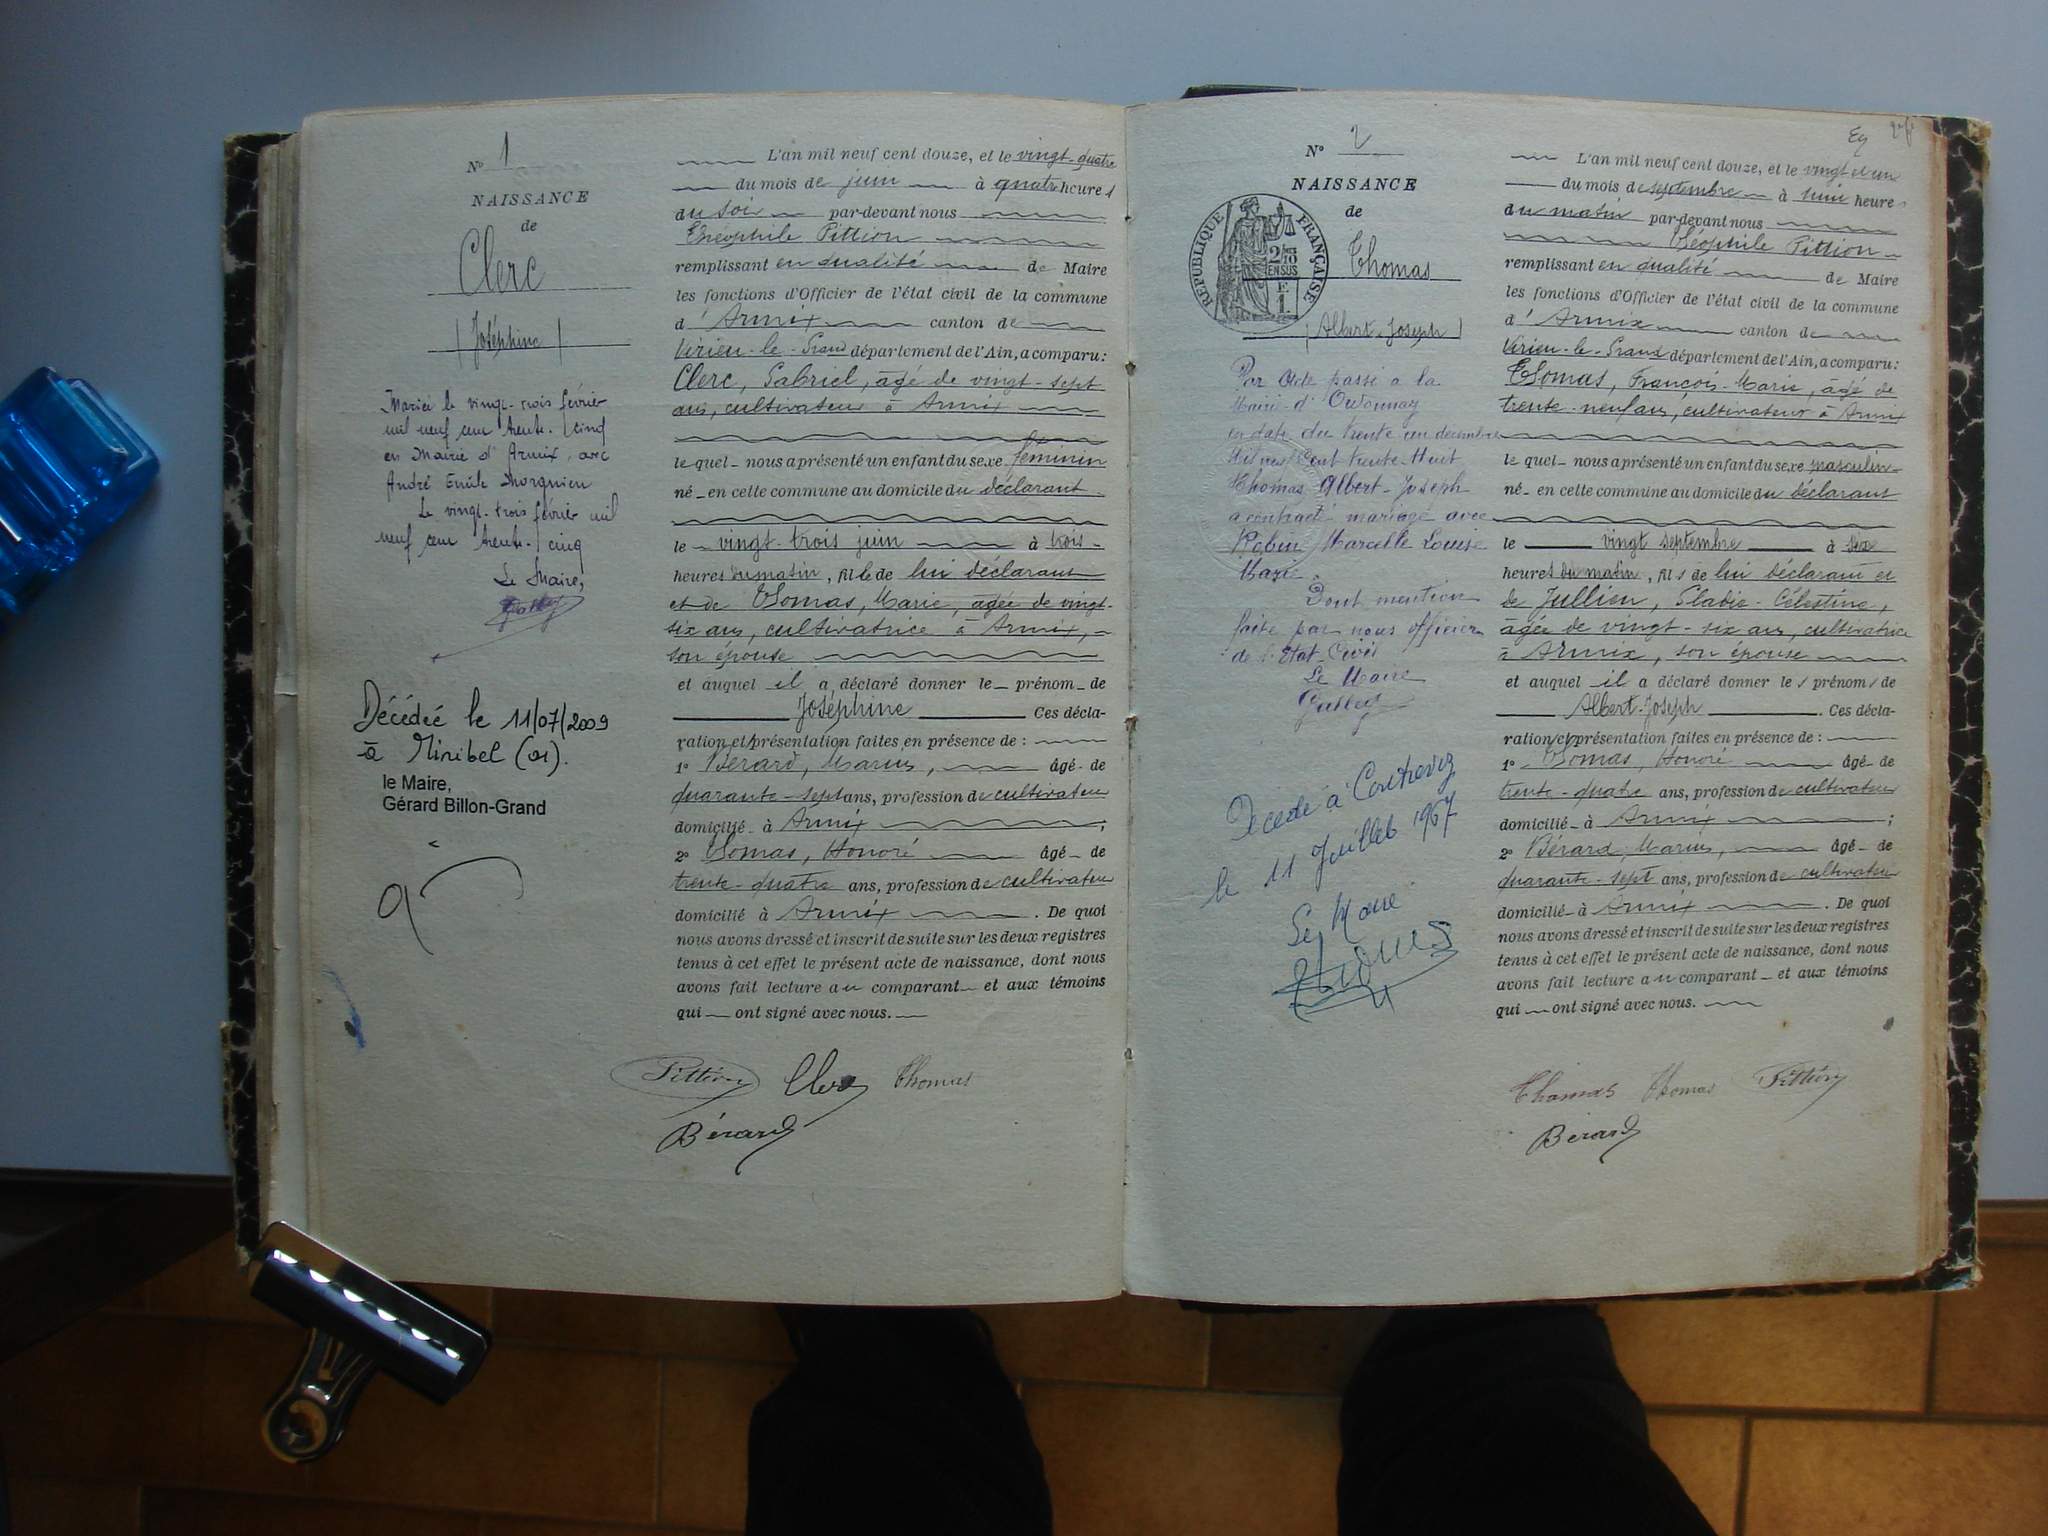 N° 1
NAISSANCE
de
Clerc
(Joséphine)
Mariée le vingt-trois février
mil neuf cent trente-cinq
en Mairie d'Armix, avec
André Emile
Le vingt-trois février mil
neuf cent trente-cinq
Le Maire,
Décédée le 11/07/2009
à Miribel (01).
le Maire,
Gérard Billon-Grand
L'an mil neuf cent douze, et le vingt-quatre
du mois de juin à quatre heures
du soir par-devant nous
Théophile Pittion
remplissant en qualité de Maire
les fonctions d'Officier de l'état civil de la commune
d'Armix canton de
Virieu-le-Grand département de l'Ain, a comparu :
Clerc, Gabriel, âgé de vingt-sept
ans, cultivateur à Armix
le quel nous a présenté un enfant du sexe féminin
né en cette commune au domicile du déclarant
le vingt-trois juin à trois
heures du matin, fille de lui déclarant
et de Thomas, Marie, âgée de vingt-
six ans, cultivatrice à Armix,
son épouse
et auquel il a déclaré donner le prénom de
Joséphine Ces décla-
ration et présentation faites en présence de :
1° Bérard, Marius, âgé de
quarante-sept ans, profession de cultivateur
domicilié à Armix ;
2° Thomas, Honoré âgé de
trente-quatre ans, profession de cultivateur
domicilié à Armix . De quoi
nous avons dressé et inscrit de suite sur les deux registres
tenus à cet effet le présent acte de naissance, dont nous
avons fait lecture au comparant et aux témoins
qui ont signé avec nous.
Pittion Clerc Thomas
Bérard
N° 2
NAISSANCE
de
RÉPUBLIQUE FRANÇAISE
2/10 EN SUS
E
1
Thomas
(Albert-Joseph)
Par acte passé a la
Mairie d'Oyonnax
en date du trente un décembre
Mil neuf Cent trente Huit
Thomas Albert-Joseph
a contracté mariage avec
Robin Marcelle Louise
Marie.
Dont mention
faite par nous officier
de l'Etat-Civil
Le Maire
Décédé à Contrevoz
le 11 Juillet 1967
Le Maire
L'an mil neuf cent douze, et le vingt et un
du mois de septembre à huit heures
du matin par-devant nous
Théophile Pittion
remplissant en qualité de Maire
les fonctions d'Officier de l'état civil de la commune
d'Armix canton de
Virieu-le-Grand département de l'Ain, a comparu :
Thomas, François-Marie, âgé de
trente-neuf ans, cultivateur à Armix
le quel nous a présenté un enfant du sexe masculin
né en cette commune au domicile du déclarant
le vingt septembre à six
heures du matin, fils de lui déclarant et
de Jullien, Célestine,
âgée de vingt-six ans, cultivatrice
à Armix, son épouse
et auquel il a déclaré donner les prénoms de
Albert-Joseph . Ces décla-
ration et présentation faites en présence de :
1° Thomas, Honoré âgé de
trente-quatre ans, profession de cultivateur
domicilié à Armix ;
2° Bérard, Marius, âgé de
quarante-sept ans, profession de cultivateur
domicilié à Armix . De quoi
nous avons dressé et inscrit de suite sur les deux registres
tenus à cet effet le présent acte de naissance, dont nous
avons fait lecture au comparant et aux témoins
qui ont signé avec nous.
Thomas Thomas Pittion
Bérard